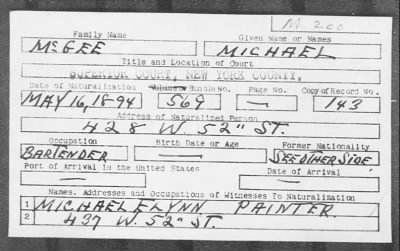 M 200
Family Name Given Name or Names
McGEE MICHAEL
Title and Location of Court
SUPERIOR COURT, NEW YORK COUNTY,
Date of Naturalization Volume or Bundle No. Page No. Copy of Record No.
MAY 16, 1894 569 — 143
Address of Naturalized Person
428 W. 52" ST.
Occupation Birth Date or Age Former Nationality
BARTENDER — SEE OTHER SIDE
Port of Arrival in the United States Date of Arrival
— —
Names, Addresses and Occupations of Witnesses To Naturalization
1 MICHAEL FLYNN PAINTER.
2 437 W. 52" ST.